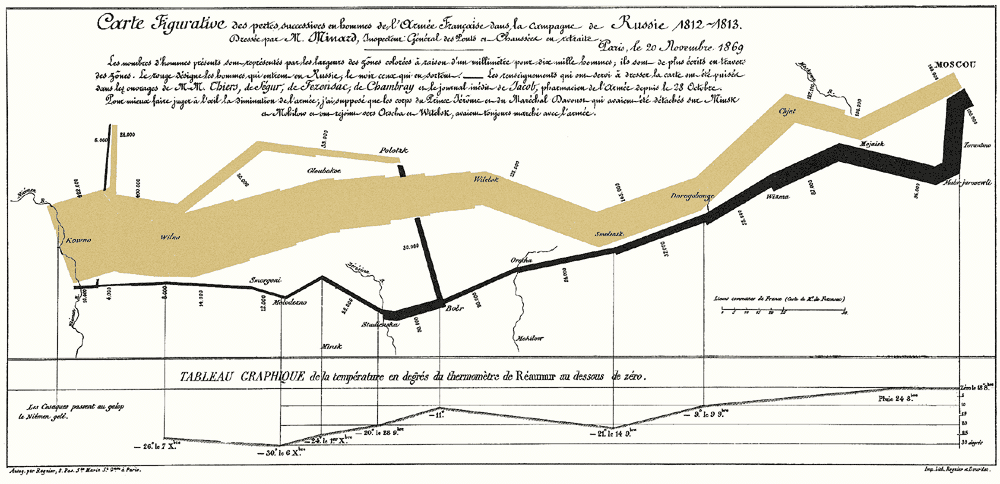 Carte Figurative des pertes successives en hommes de l'Armée Française dans la campagne de Russie 1812-1813.
Dressée par M. Minard, Inspecteur Général des Ponts et Chaussées en retraite.
Paris, le 20 Novembre 1869
Les nombres d'hommes présents sont représentés par les largeurs des zones colorées à raison d'un millimètre pour dix mille hommes; ils sont de plus écrits en travers
des zones. Le rouge désigne les hommes qui entrent en Russie, le noir ceux qui en sortent. Les renseignements qui ont servi à dresser la carte ont été puisés
dans les ouvrages de M.M. Thiers, de Ségur, de Fezensac, de Chambray et le journal inédit de Jacob, pharmacien de l'Armée depuis le 28 Octobre.
Pour mieux faire juger à l'œil la diminution de l'armée, j'ai supposé que les corps du Prince Jérôme et du Maréchal Davoust qui avaient été détachés sur Minsk
et Mohilow et ont rejoint vers Orscha et Witebsk, avaient toujours marché avec l'armée.
MOSCOU
Polotzk
Gloubokoe
Witebsk
Chjat
Mojaisk
Tarantino
Malo-jarosewli
Wixma
Dorogobouge
Smolensk
Orscha
Mohilow
Kowno
Wilna
Smorgoni
Molodezno
Minsk
Studienska
Bobr
Lieues communes de France (Carte de M. de Fezensac)
TABLEAU GRAPHIQUE de la température en degrés du thermomètre de Réaumur au dessous de zéro.
Les Cosaques passent au galop
le Niémen gelé.
Zéro le 18 8.bre
Pluie 24 8.bre
5
10
15
20
25
30 degrés
— 9.° le 9 9.bre
— 21.° le 14 9.bre
— 11.°
— 20.° le 28 9.bre
— 24.° le 1.er X.bre
— 30.° le 6 X.bre
— 26.° le 7 X.bre
Autog. par Regnier, 8. Pas. S.te Marie S.t G.ain à Paris.
Imp. Lith. Regnier et Dourdet.